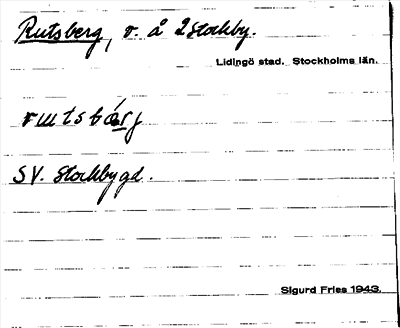 Rutsberg, v. å 2 Stockby.
Lidingö stad. Stockholms län.
SV. Stockbygd.
Sigurd Fries 1943.